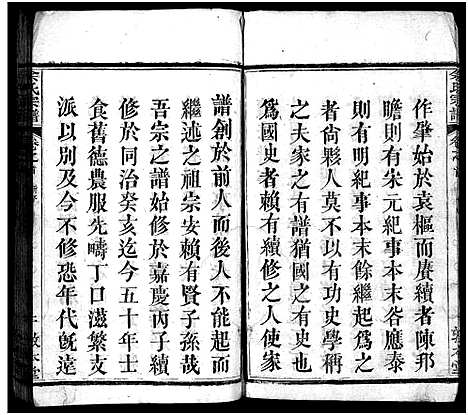 余氏宗譜
卷之首
敦本堂
作肇始於袁樞而賡續者陳邦
瞻則有宋元紀事本末谷應泰
則有明史紀事本末餘繼起爲之
者尚數夥人莫不以有功史學稱
之夫家之有譜猶國之有史也
爲國史者賴有續修之人使家
譜創於前人而後人不能起而
繼述之祖宗安賴有賢子孫哉
吾宗之譜始修於嘉慶丙子續
修於同治癸亥迄今五十年士
食舊德農服先疇丁口滋繁支
派以別及今不修恐年代旣遠
余氏宗譜
卷之首
敦本堂